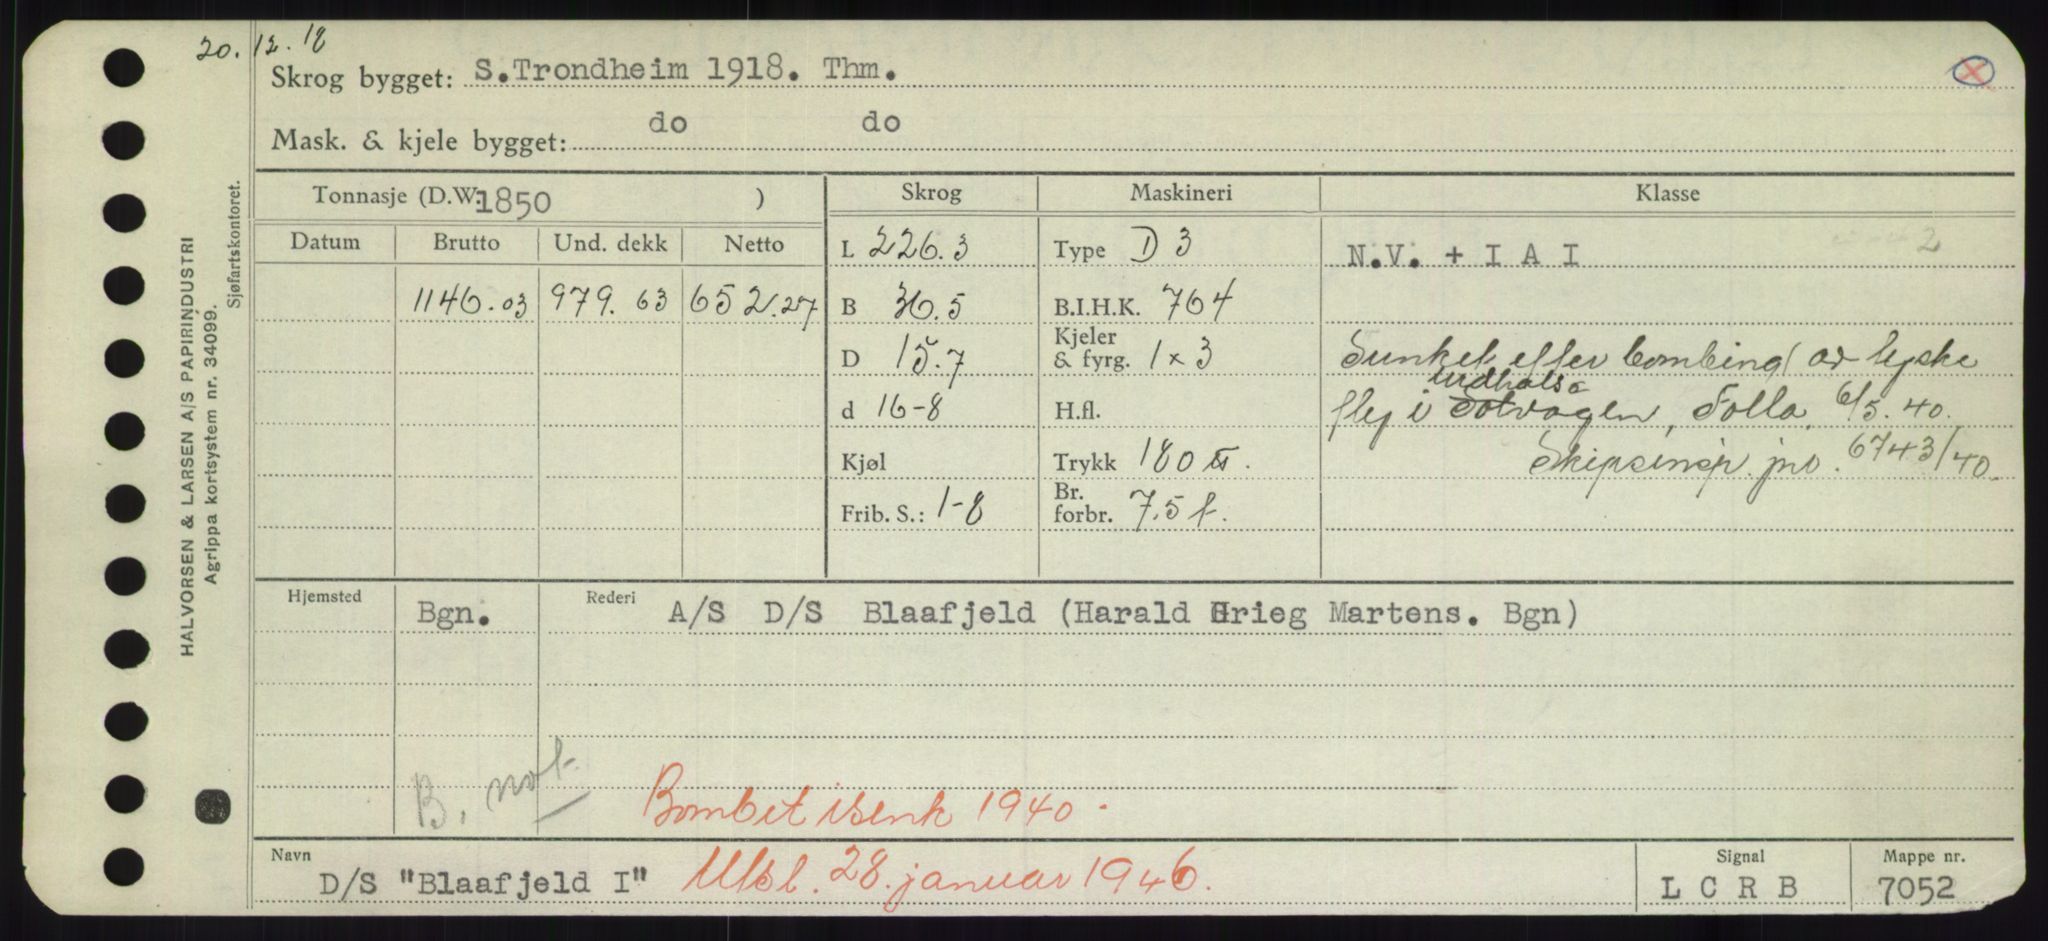 20. 12. 18
Skrog bygget: S.Trondheim 1918. Thm.
Mask. & kjele bygget: do do
HALVORSEN & LARSEN A/S PAPIRINDUSTRI
Agrippa kortsystem nr. 34099.
Sjøfartskontoret.
Tonnasje (D.W: 1850 ) Skrog Maskineri Klasse
Datum Brutto Und. dekk Netto
L 226.3 Type D 3 N.V. + I A I 2
1146.03 979.63 652.27 B 36.5 B.I.H.K. 764
D 15.7 Kjeler & fyrg. 1 x 3 Sunket efter bombing av tyske
d 16-8 H.fl. fly i Solvågen, Folla, 6/5.40.
Kjøl Trykk 180 Skipsinsp. jnr. 6743/40.
Frib. S.: 1-8 Br. forbr. 7,5 t.
Hjemsted Bgn. Rederi A/S D/S Blaafjeld (Harald Grieg Martens. Bgn)
B. not
Bombet i senk 1940.
Navn Signal Mappe nr.
D/S "Blaafjeld I" Utsl. 28. januar 1946. L C R B 7052